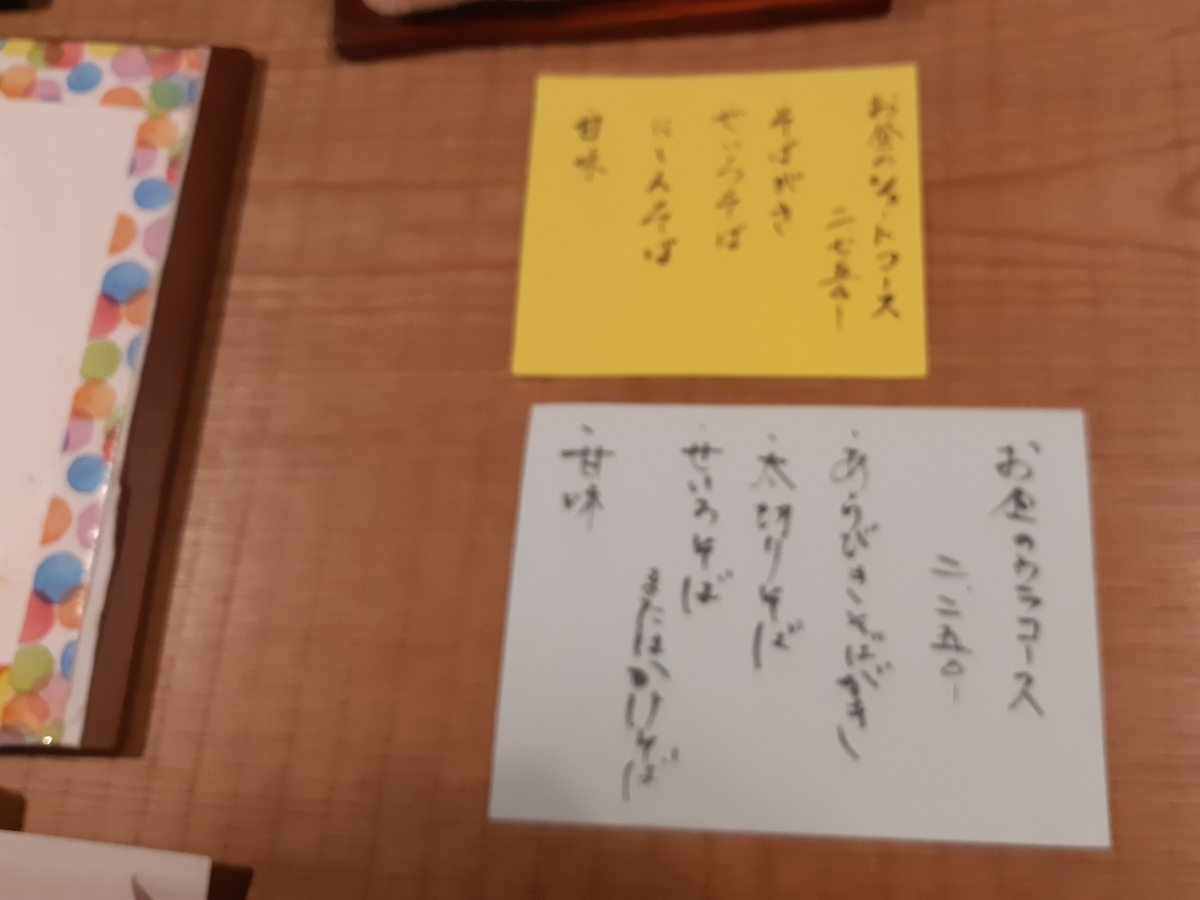 お昼のショートコース
二七五〇ー
そばがき
せいろそば
にしんそば
甘味
お昼のウラコース
二、二五〇ー
・あらびきそばがき
・太切りそば
・せいろそば
またはかけそば
・甘味